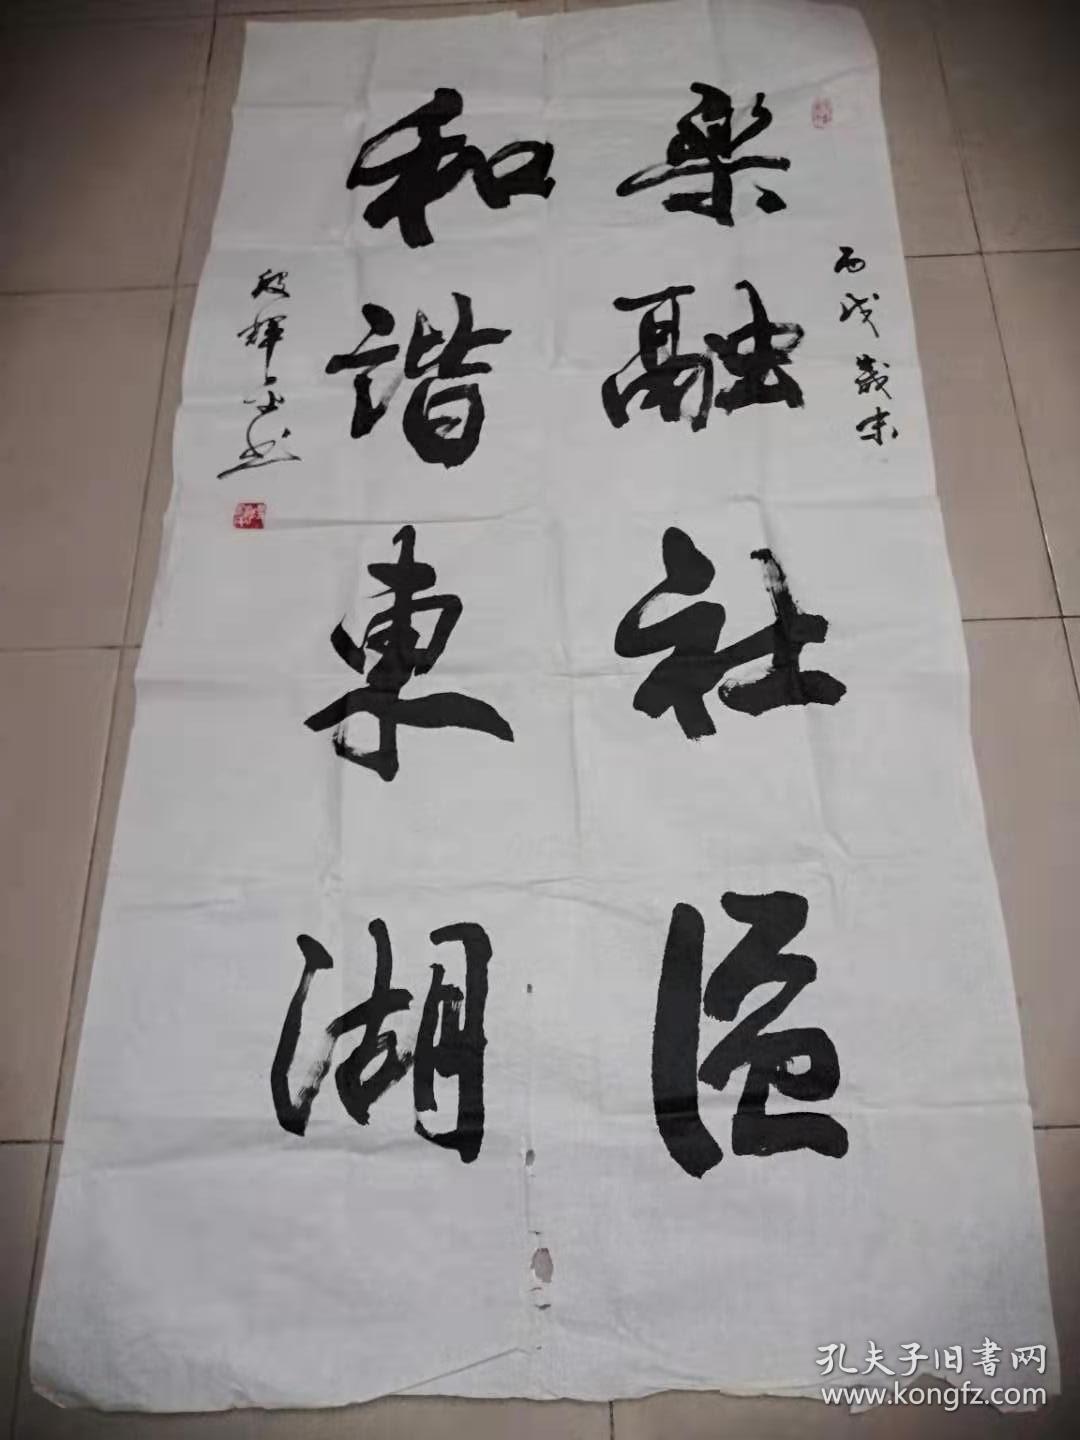 丙戌歲末
樂融社區
和諧東湖
殷輝
孔夫子旧書网
www.kongfz.com